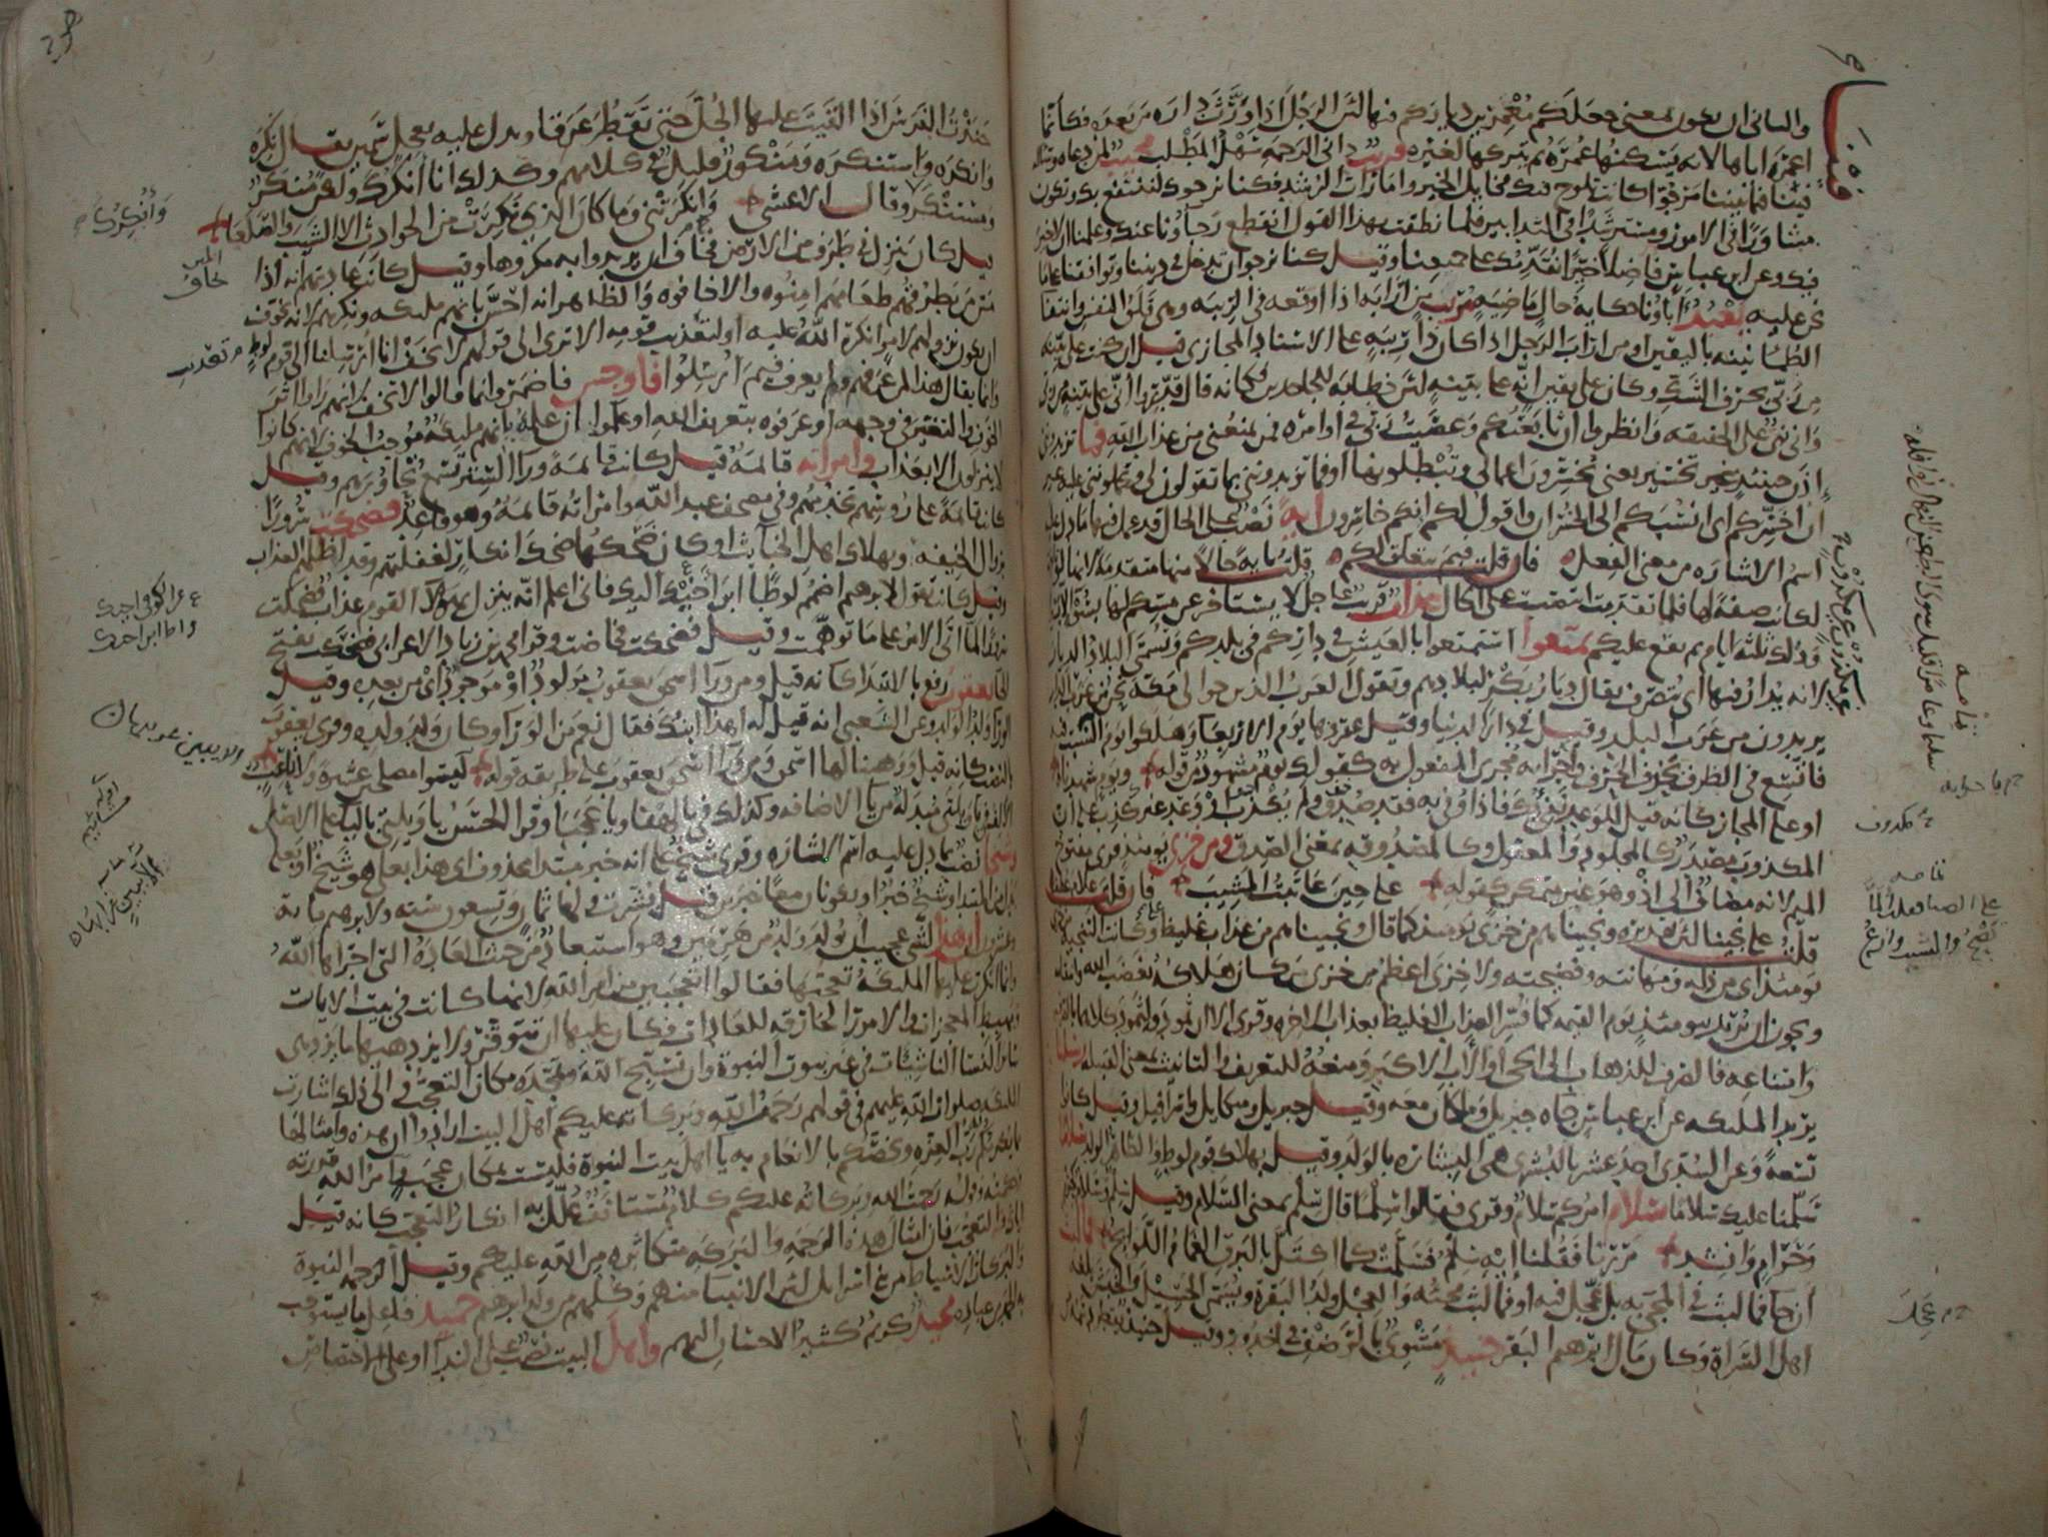 والثاني ان يكون بمعنى جعلكم مُعْمِرين دياركم فيها لان الرجل اذا ورّث داره من بعده فكأنما
اعمره اياها لانه يسكنها عمره ثم يتركها لغيره قريب داني الرحمة سهل المطلب مجيب لمن دعاه وسأله
فينا فيما بيننا مرجوا كانت تلوح فيك مخايل الخير وامارات الرشد فكنا نرجوك لننتفع بك وتكون
مشاورا في الامور ومسترشدا في التدابير فلما نطقت بهذا القول انقطع رجاؤنا عنك وعلمنا ان لا خير
فيك وعن ابن عباس فاضلا خيرا نقدمك على جميعنا وقيل كنا نرجو ان تدخل في ديننا وتوافقنا على ما
نحن عليه يعبد اباؤنا حكاية حال ماضية مريب من ارابه اذا اوقعه في الريبة وهي قلق النفس وانتفاء
الطمأنينة باليقين او من اراب الرجل اذا كان ذا ريبة على الاسناد المجازي قيل ان كنت على بينة
من ربي بحرف الشك وكان على يقين انه على بينة لان خطابه للجاحدين فكانه قال قدروا اني على بينة من ربي
واني نبي على الحقيقة وانظروا ان تابعتكم وعصيت ربي في اوامره فمن يمنعني من عذاب الله فما تزيدونني
اذن حينئذ غير تخسير يعني تخسرون اعمالي وتبطلونها او فما تزيدونني بما تقولون لي وتحملونني عليه غير
ان اخسركم اي انسبكم الى الخسران واقول لكم انكم خاسرون اية نصب على الحال قد عمل فيها ما دل عليه
اسم الاشارة من معنى الفعل فان قلت فبم يتعلق لكم قلت باية حالا منها متقدمة لانها لو تأخرت
لكانت صفة لها فلما تقدمت انتصبت على الحال عذاب قريب عاجل لا يستأخر عن مسكم لها بسوء الا يسيرا
وذلك ثلثة ايام ثم يقع عليكم تمتعوا استمتعوا بالعيش في داركم في بلدكم وتسمى البلاد الديار
لانه يدار فيها اي يتصرف يقال ديار بكر لبلادهم وتقول العرب الذين حوالي مكة نحن من عرب الدار
يريدون من عرب البلد وقيل في دار الدنيا وقيل عقروها يوم الاربعا وهلكوا يوم السبت
فاتسع في الظرف بحذف الحرف واجرائه مجرى المفعول به كقولك يوم مشهود من قوله ويوم شهدناه
او على المجاز كانه قيل للوعد نفي بك فاذا وفي به فقد صدق ولم يكذب او وعد غير كذب على ان
المكذوب مصدر كالمجلود والمعقول وكالمصدوقة بمعنى الصدق ومن خزي يومئذ قرئ مفتوح
الميم لانه مضاف الى اذ وهو غير متمكن كقوله على حين عاتبت المشيب فان قلت علام عطف
قلت على نجينا لان تقديره ونجيناهم من خزي يومئذ كما قال ونجيناهم من عذاب غليظ وكانت التنجية
يومئذ اي من ذله ومهانته وفضيحته ولا خزي اعظم من خزي من كان هلاكه بغضب الله وانتقامه
ويجوز ان يريد بيومئذ يوم القيمة كما فسر العذاب الغليظ بعذاب الاخرة وقرئ الا ان ثمود ولثمود كلاهما بالصرف
وامتناعه فالصرف للذهاب الى الحي او الاب الاكبر ومنعه للتعريف والتانيث بمعنى القبيلة رسلنا
يريد الملئكة عن ابن عباس جاه جبريل وملكان معه وقيل جبريل وميكايل واسرافيل وقيل كانوا
تسعة وعن السدي احد عشر بالبشرى هي البشارة بالولد وقيل بهلاك قوم لوط والظاهر الولد سلاما
سلمنا عليك سلاما سلام امركم سلام وقرئ فقالوا سلما قال سلم بمعنى السلام وقيل سلم وسلام كحرم
وحرام وانشد مررنا فقلنا ايه سلم فسلمت كما اكتل بالبرق الغمام اللوائح فما لبث
ان جا فما لبث في المجيء به بل عجل فيه او فما لبث مجيئه والعجل ولد البقرة ويسمى الحسيل والخبش بلغة
اهل السراة وكان مال ابرهيم البقر حنيذ مشوي بالرضف في اخدود وقيل حنيذ يقطر دسمه من
حنذت الفرس اذا القيت عليها الجل حتى تقطر عرقا ويدل عليه بعجل سمين يقال نكره
وانكره واستنكره ومنكور قليل في كلامهم وكذلك انا انكرك ولكن منكر
ومستنكر وقال الاعشى وانكرتني وما كان الذي نكرت من الحوادث الا الشيب والصلعا
قيل كان ينزل في طرف من الارض فخاف ان يريدوا به مكروها وقيل كانت عادتهم انه اذا
مس من يطرقهم طعامهم امنوه والا خافوه والظاهر انه احس بانهم ملئكة ونكرهم لانه تخوف
ان يكون نزولهم لامر انكره الله عليه او لتعذيب قومه الا ترى الى قولهم لا تخف انا ارسلنا الى قوم لوط
وانما يقال هذا لمن عرفهم ولم يعرف فيم ارسلوا فاوجس فاضمر وانما قالوا لا تخف لانهم راوا اثر
الخوف والتغير في وجهه او عرفوه بتعريف الله او علموا ان علمه بانهم ملئكة موجب للخوف لانهم كانوا
لا ينزلون الا بعذاب وامراته قائمة قيل كانت قائمة ورا الستر تسمع تحاورهم وقيل
كانت قائمة على رؤسهم تخدمهم وفي مصحف عبد الله وامراته قائمة وهو قاعد فضحكت سرورا
بزوال الخيفة وبهلاك اهل الخبايث او كان ضحكها ضحك انكار لغفلتهم وقد اظلهم العذاب
وقيل كانت تقول لابرهيم اضمم لوطا ابن اخيك اليك فاني اعلم انه ينزل بهؤلا القوم عذاب فضحكت
سرورا لما اتى الامر على ما توهمت وقيل فضحكت فحاضت وقرا محمد بن زياد الاعرابي فضحكت بفتح
الحا يعقوب رفع بالابتدا كانه قيل ومن ورا اسحق يعقوب مولود او موجود اي من بعده وقيل
الورا ولد الولد وعن الشعبي انه قيل له اهذا ابنك فقال نعم من الورا وكان ولد ولده وقرئ يعقوب
بالنصب كانه قيل ووهبنا لها اسحق ومن ورا اسحق يعقوب على طريقة قوله ليسوا مصلحين عشيرة ولا ناعب
الالف في يا ويلتى مبدلة من يا الاضافة وكذلك في يا لهفا ويا عجبا وقرا الحسن يا ويلتي باليا على الاصل
وشيخا نصب بما دل عليه اسم الاشارة وقرئ شيخ على انه خبر مبتدا محذوف اي هذا بعلي هو شيخ او بعلي
بدل من المبتدا وشيخ خبر او يكونان معا خبرين قيل بشرت ولها ثمان وتسعون سنة ولابرهيم مائة
وعشرون ان هذا لشيء عجيب ان يولد ولد من هرمين وهو استبعاد من حيث العادة التي اجراها الله
وانما انكرت عليها الملئكة تعجبها فقالوا اتعجبين من امر الله لانها كانت في بيت الايات
ومهبط المعجزات والامور الخارقة للعادات فكان عليها ان تتوقر ولا يزدهيها ما يزدهي
سائر النسا الناشئات في غير بيوت النبوة وان تسبح الله وتمجده مكان التعجب والى ذلك اشارت
الملئكة صلوات الله عليهم في قولهم رحمت الله وبركاته عليكم اهل البيت ارادوا ان هذه وامثالها
مما يكرمكم به رب العزة ويخصكم بالانعام به يا اهل بيت النبوة فليست بمكان عجب وامر الله قدرته
وحكمته وقوله رحمت الله وبركاته عليكم كلام مستانف علل به انكار التعجب كانه قيل
اياك والتعجب فان امثال هذه الرحمة والبركة متكاثرة من الله عليكم وقيل الرحمة النبوة
والبركات الاسباط من بني اسرايل لان الانبيا منهم وكلهم من ولد ابرهيم حميد فاعل ما يستوجب
به الحمد من عباده مجيد كريم كثير الاحسان اليهم واهل البيت نصب على الندا او على الاختصاص